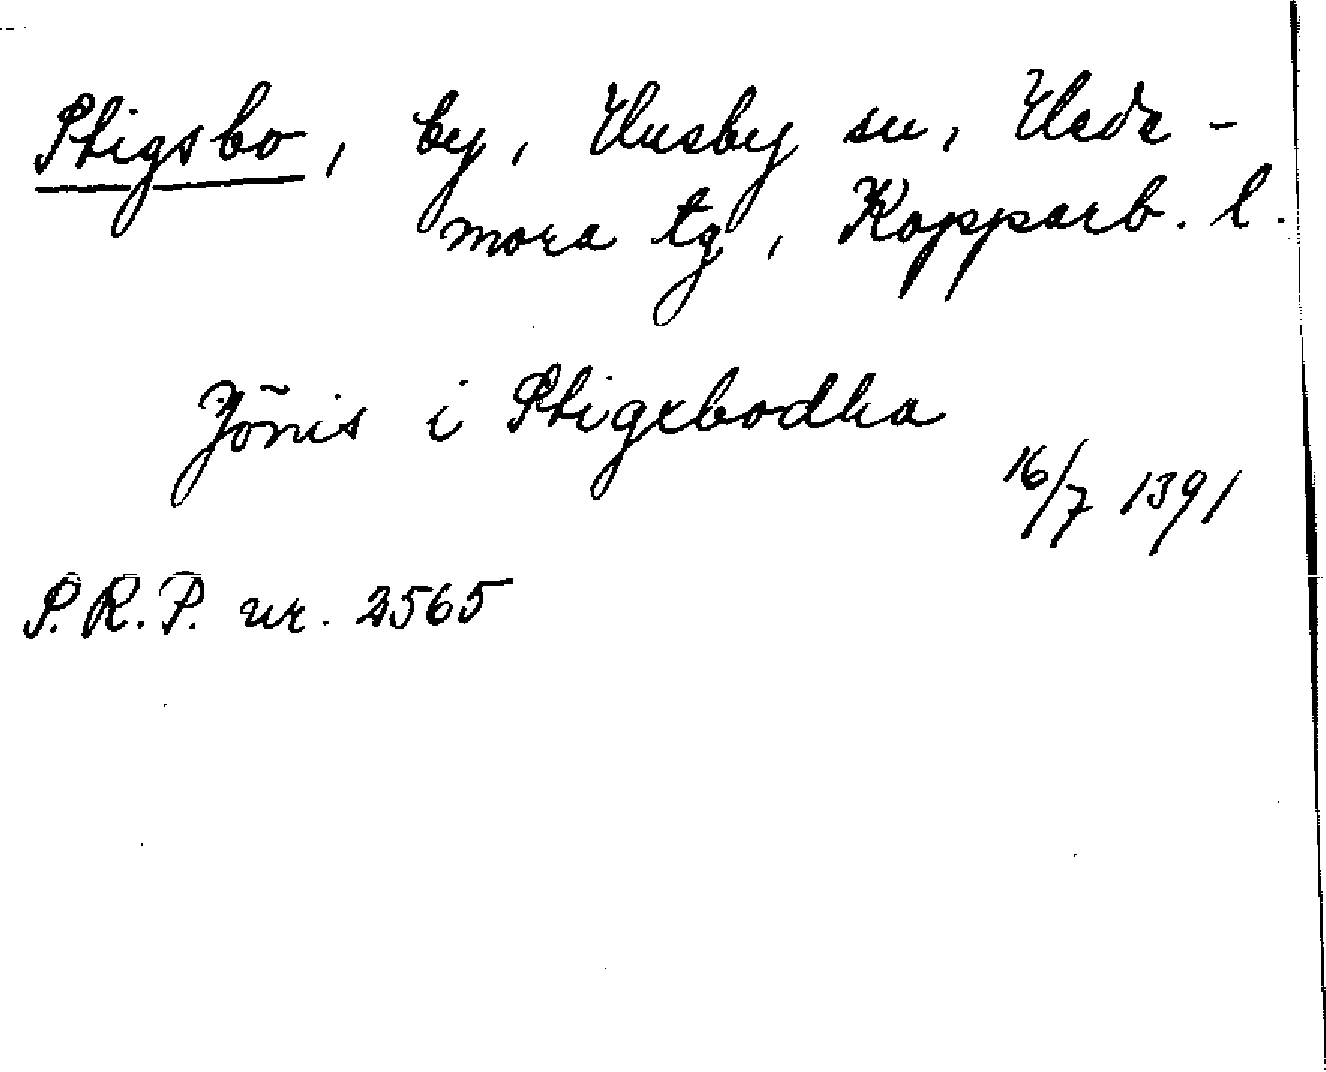 Stigsbo, by, Husby sn, Hede-
mora tg, Kopparb. l.
Jõnis i Stigxbodha
16/7 1391
S.R.P. nr. 2565